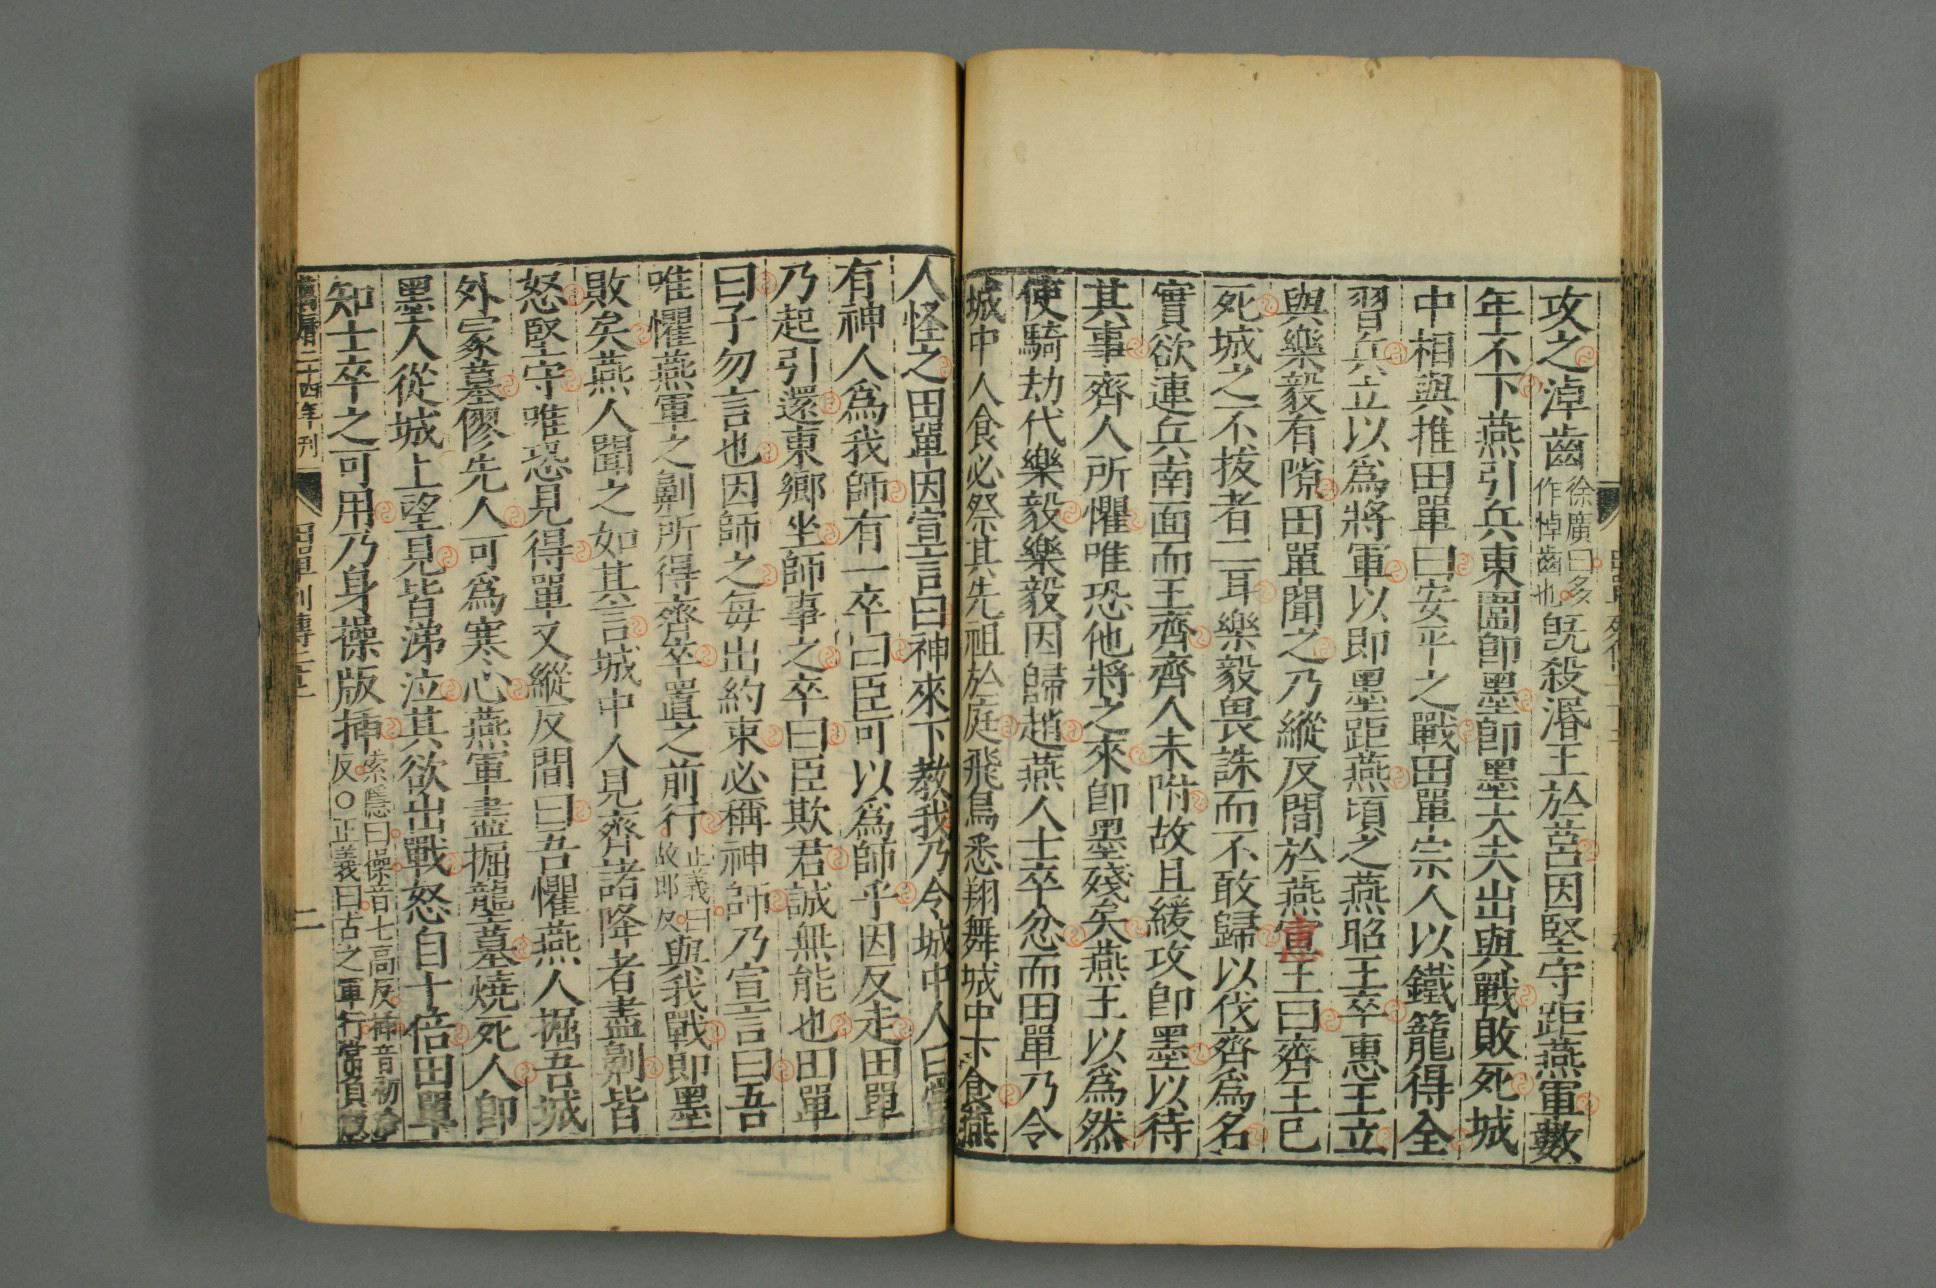 攻之淖齒徐廣曰多作悼齒也既殺湣王於莒因堅守距燕軍數
年不下燕引兵東圍卽墨卽墨大夫出與戰敗死城
中相與推田單曰安平之戰田單宗人以鐵籠得全
習兵立以爲將軍以即墨距燕頃之燕昭王卒惠王立
與樂毅有隙田單聞之乃縱反間於燕宣王曰齊王已
死城之不拔者二耳樂毅畏誅而不敢歸以伐齊爲名
實欲連兵南面而王齊齊人未附故且緩攻卽墨以待
其事齊人所懼唯恐他將之來卽墨殘矣燕王以爲然
使騎劫代樂毅樂毅因歸趙燕人士卒忿而田單乃令
城中人食必祭其先祖於庭飛鳥悉翔舞城中下食燕
人怪之田單因宣言曰神來下教我乃令城中人曰當
有神人爲我師有一卒曰臣可以爲師乎因反走田單
乃起引還東鄉坐師事之卒曰臣欺君誠無能也田單
曰子勿言也因師之每出約束必稱神師乃宣言曰吾
唯懼燕軍之劓所得齊卒置之前行正義曰故郎反與我戰即墨
敗矣燕人聞之如其言城中人見齊諸降者盡劓皆
怒堅守唯恐見得單又縱反間曰吾懼燕人掘吾城
外冢墓僇先人可爲寒心燕軍盡掘壟墓燒死人卽
墨人從城上望見皆涕泣其欲出戰怒自十倍田單
知士卒之可用乃身操版插索隱曰操音七高反插音初洽反○正義曰古之軍行常負
二十四年刊
田單列傳二十二
二